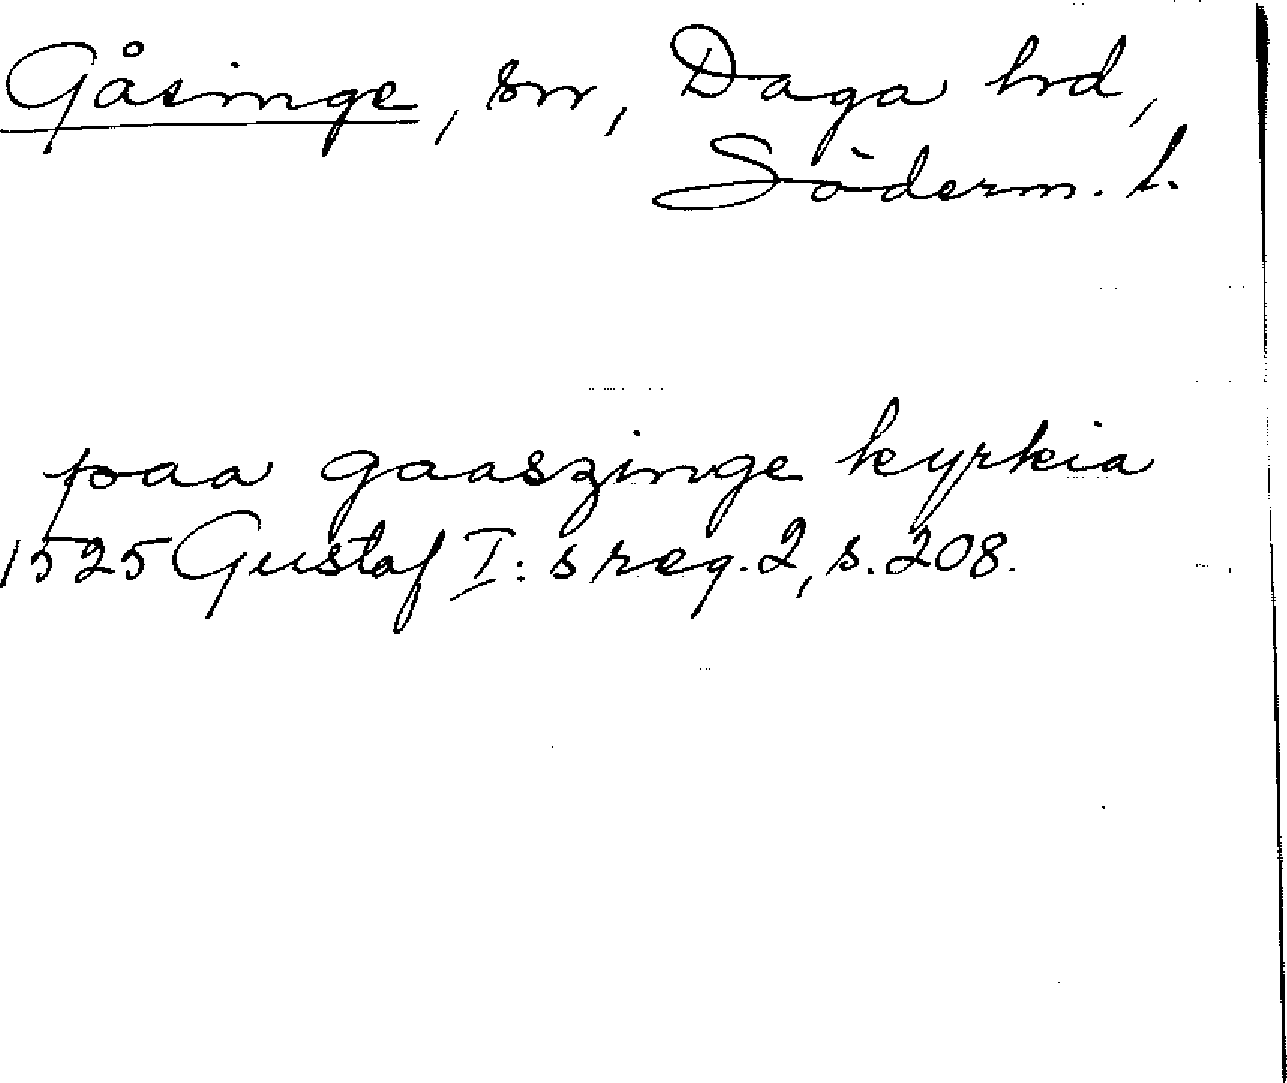 Gåsinge, sn, Daga hd,
Söderm. l.
paa gaaszinge kyrkia
1525 Gustaf I:s reg. 2, s. 208.